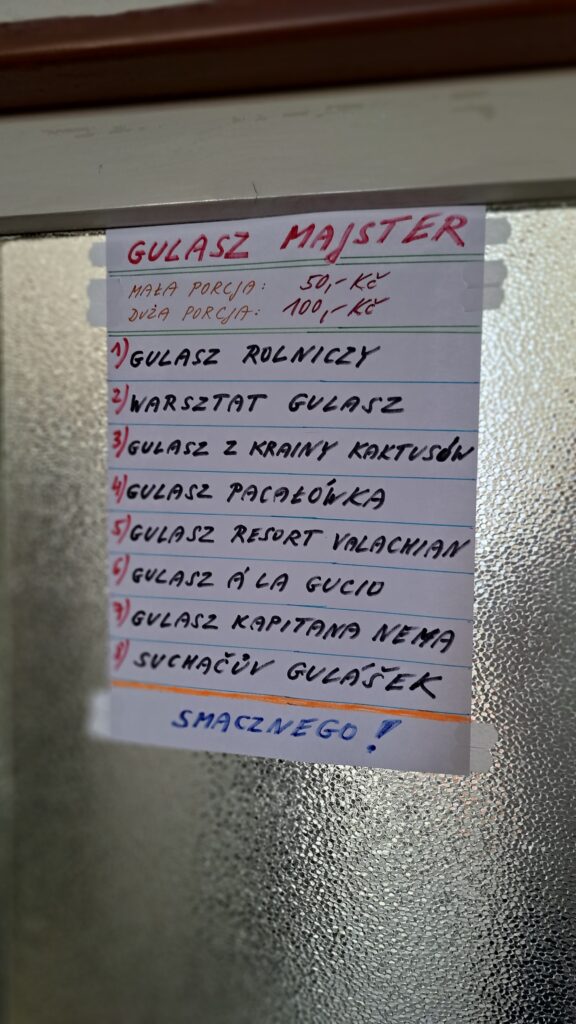 GULASZ MAJSTER
MAŁA PORCJA: 50,-Kč
DUŻA PORCJA: 100,-Kč
1) GULASZ ROLNICZY
2) WARSZTAT GULASZ
3) GULASZ Z KRAINY KAKTUSÓW
4) GULASZ PACAŁÓWKA
5) GULASZ RESORT VALACHIAN
6) GULASZ Á LA GUCIO
7) GULASZ KAPITANA NEMA
8) SUCHAČŮV GULÁŠEK
SMACZNEGO!